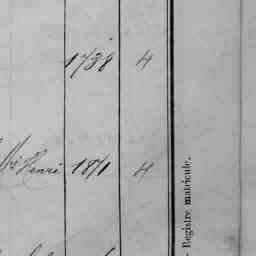 1738 4
Henri 1871 4
Registre matricule.